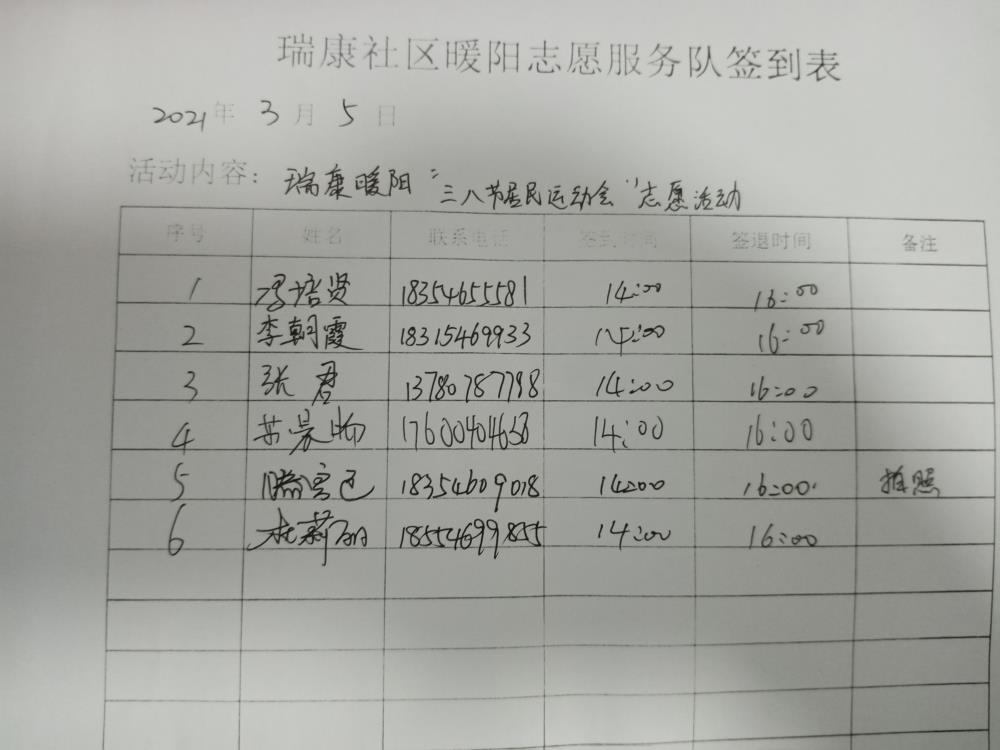 瑞康社区暖阳志愿服务队签到表
2021年 3 月 5 日
活动内容: 瑞康暖阳“三八节居民运动会”志愿活动
序号 姓名 联系电话 签到时间 签退时间 备注
1 冯培贤 18354655581 14:00 16:00
2 李朝霞 18315469933 14:00 16:00
3 张君 13780787798 14:00 16:00
4 17600404668 14:00 16:00
5 18354609018 14:00 16:00 拍照
6 杜莉丽 18554699855 14:00 16:00